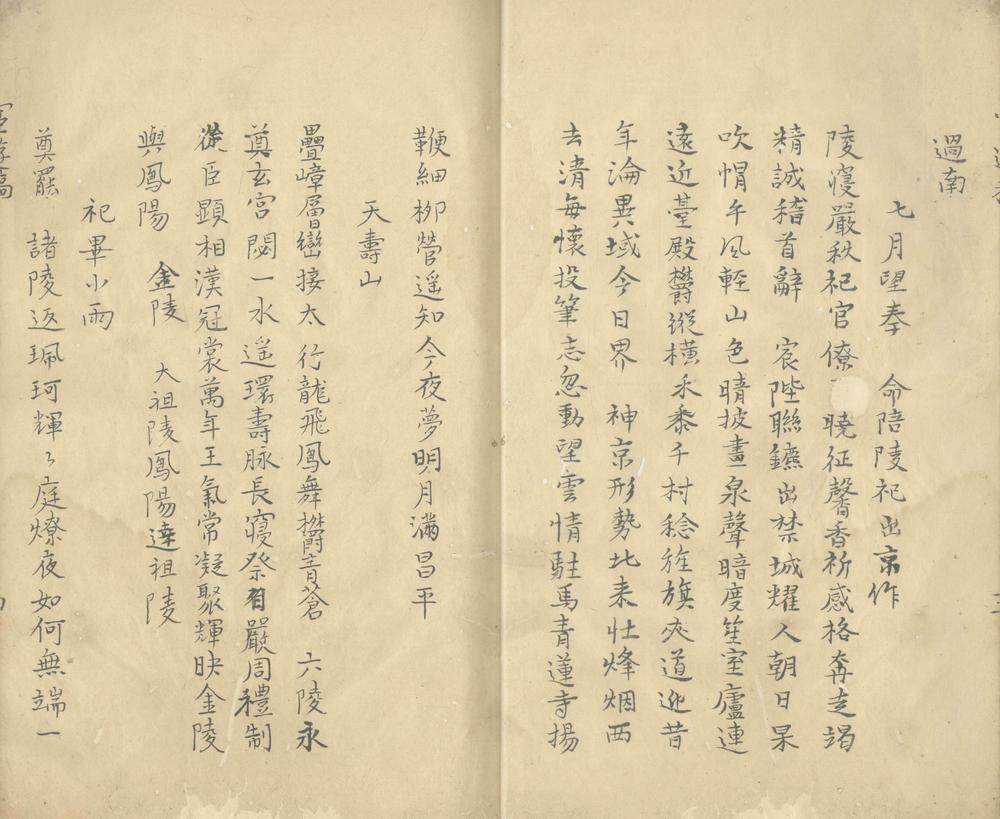 過南
七月望奉　命陪陵祀出京作
陵寢嚴秋祀官僚　曉征馨香祈感格奔走竭
精誠稽首辭　宸陛聯鑣出禁城耀人朝日杲
吹帽午風輕山色晴披畫泉聲暗度笙室廬連
遠近臺殿欝縱橫禾黍千村稔旌旗夾道迎昔
年淪異域今日界　神京形勢北来壮烽烟西
去清每懷投筆志忽動望雲情駐馬青蓮寺揚
鞭細柳營遥知今夜夢明月滿昌平
天壽山
疊嶂層巒接太行龍飛鳳舞欝青蒼　六陵永
奠玄宮閟一水遥環壽脉長寢祭有嚴周禮制
從臣顕相漢冠裳萬年王氣常凝聚輝映金陵
與鳳陽　金陵　大祖陵鳳陽達祖陵
祀畢小雨
奠罷　諸陵返珮珂輝々庭燎夜如何無端一